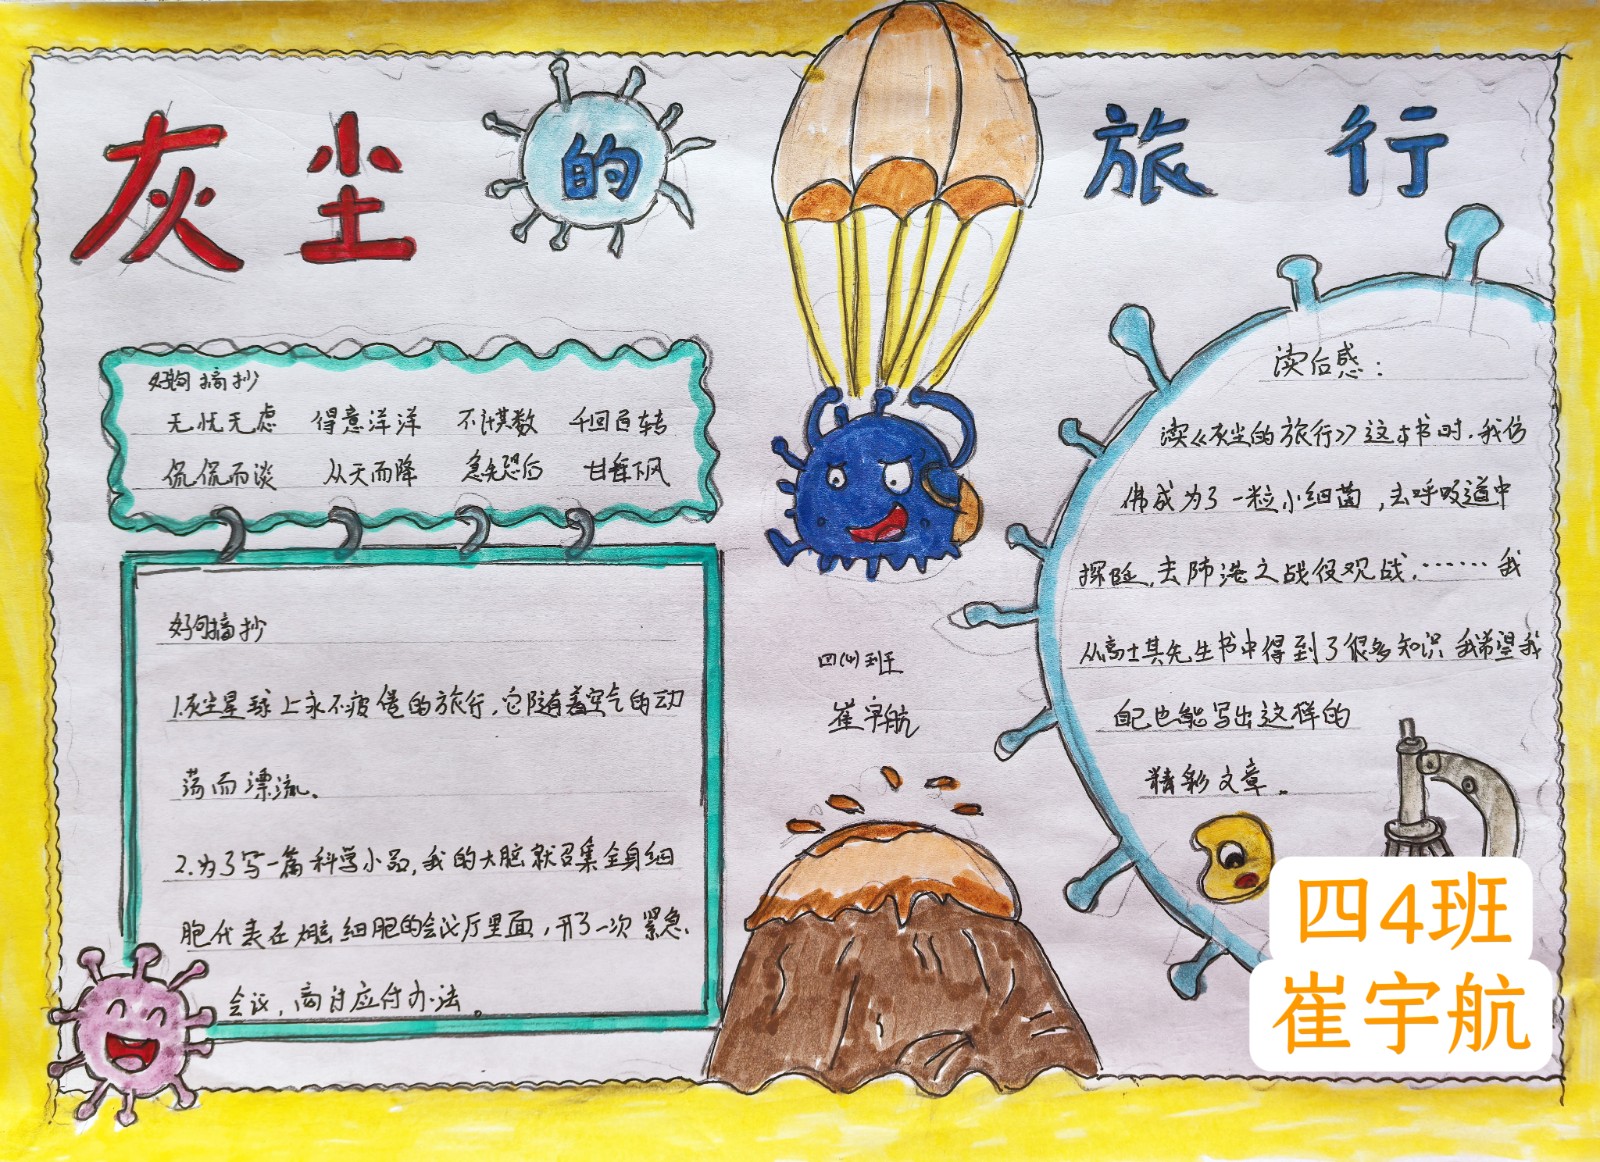 灰尘的旅行
好句摘抄
无忧无虑 得意洋洋 不计其数 千回百转
侃侃而谈 从天而降 争先恐后 甘拜下风
好句摘抄
1.灰尘星球上永不疲倦的旅行,它随着空气的动
荡而漂流、
2.为了写一篇科学小品,我的大脑就召集全身细
胞代表在大脑细胞的会议厅里面,开了一次紧急、
会议,商讨应付办法。
四(4)班
崔宇航
读后感:
读《灰尘的旅行》这本书时,我仿
佛成为了一粒小细菌,去呼吸道中
探险,去肺港之战役观战,……我
从高士其先生书中得到了很多知识 我希望我
自己也能写出这样的
精彩文章。
四4班
崔宇航